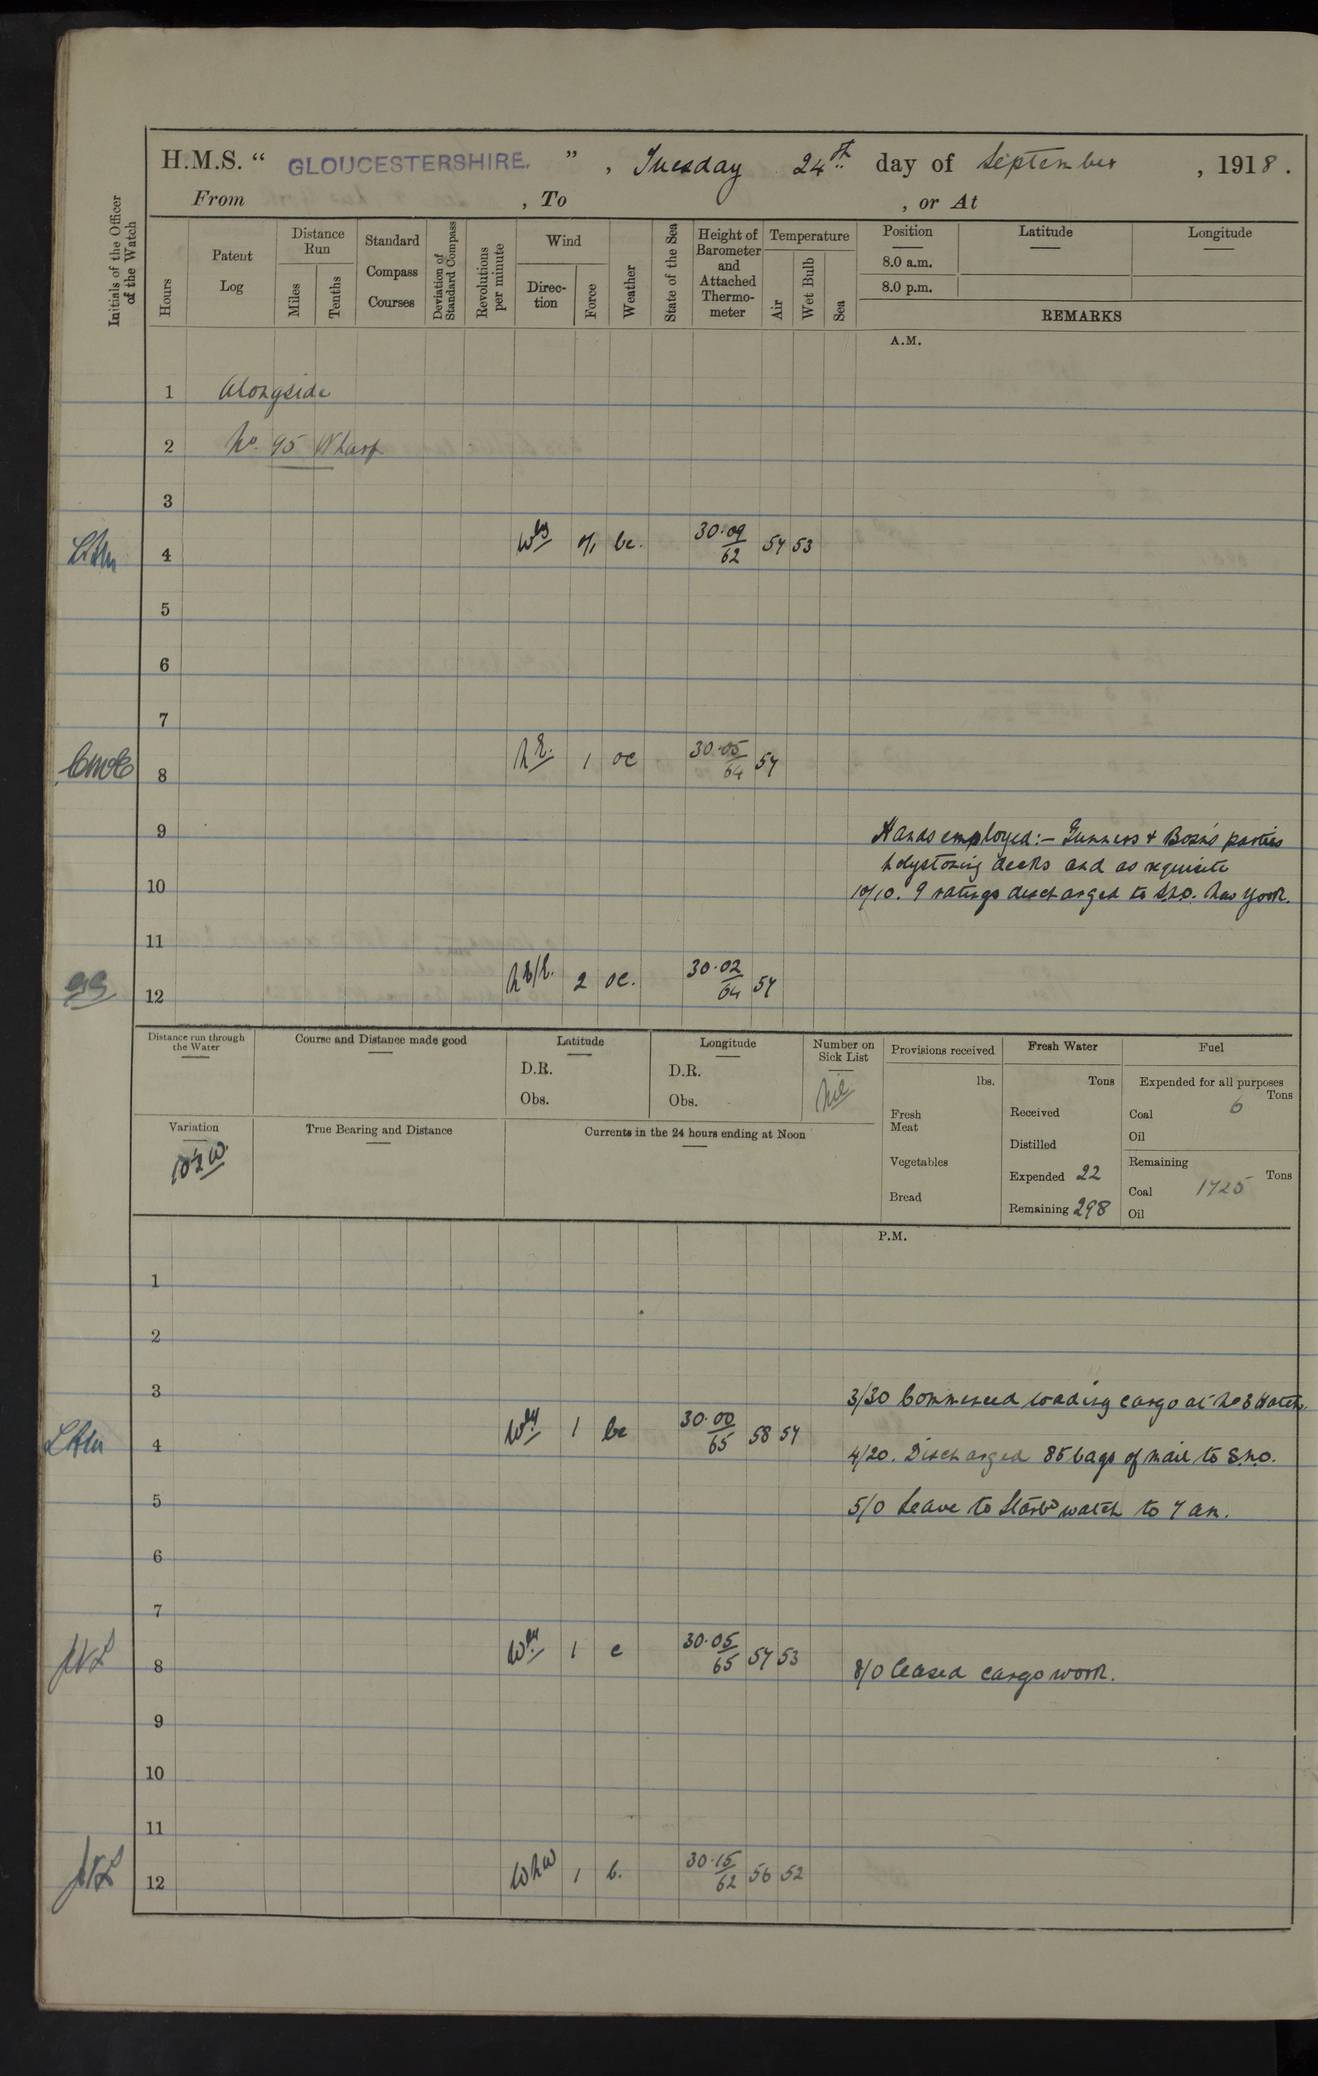 H.M.S. " GLOUCESTERSHIRE. " , Tuesday 24th day of September , 1918.
From , To , or At
Initials of the Officer of the Watch
Hours
Patent Log
Distance Run
Miles
Tenths
Standard Compass Courses
Deviation of Standard Compass
Revolutions per minute
Wind
Direction
Force
Weather
State of the Sea
Height of Barometer and Attached Thermometer
Temperature
Air
Wet Bulb
Sea
Position
8.0 a.m.
8.0 p.m.
Latitude
Longitude
REMARKS
A.M.
1 Alongside
2 No. 95 Wharf
3
4 Wly 0/1 bc. 30.09/62 54 53
5
6
7
8 NE. 1 oc 30.05/64 54
9 Hands employed:- Gunners & Bosn's parties
holystoning decks and as requisite
10 10/10. 9 ratings discharged to S.N.O. New York.
11
12 NE/E. 2 oc. 30.02/64 54
Distance run through the Water
Course and Distance made good
Latitude
D.R.
Obs.
Longitude
D.R.
Obs.
Number on Sick List
Nil
Provisions received
lbs.
Fresh Meat
Vegetables
Bread
Fresh Water
Tons
Received
Distilled
Expended 22
Remaining 298
Fuel
Expended for all purposes
Tons
Coal 6
Oil
Remaining
Tons
Coal 1725
Oil
Variation
10½W.
True Bearing and Distance
Currents in the 24 hours ending at Noon
P.M.
1
2
3 3/30 Commenced loading cargo at No 3 Hatch.
4 Wly 1 bc 30.00/65 58 54 4/20. Discharged 85 bags of mail to S.N.O.
5 5/0 Leave to Starbd watch to 7 am.
6
7
8 Wly 1 c 30.05/65 54 53 8/0 Ceased cargo work.
9
10
11
12 WNW 1 b. 30.15/62 56 52